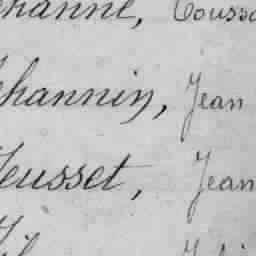 hanne, Touss
hannin, Jean
eusset, Jean